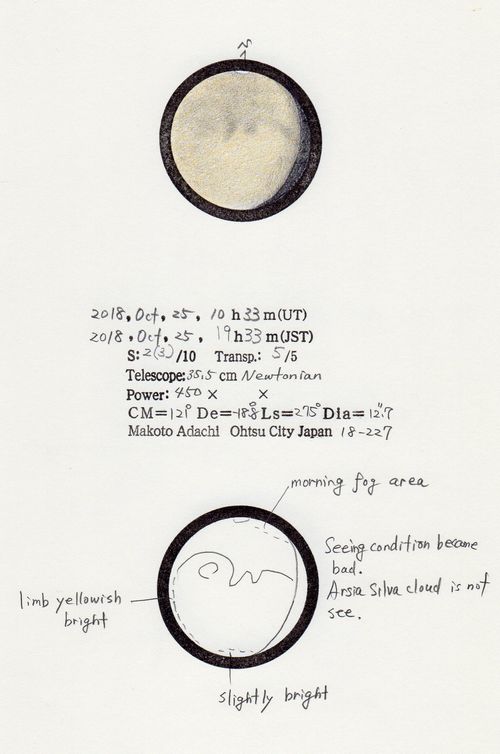 N
2018, Oct, 25, 10 h 33 m (UT)
2018, Oct, 25, 19 h 33 m (JST)
S: 2(3)/10 Transp.: 5/5
Telescope: 35.5 cm Newtonian
Power: 450 × ×
CM=121° De=-18.8° Ls=275° Dia=12".7
Makoto Adachi Ohtsu City Japan 18-227
morning fog area
Seeing condition became
bad.
Arsia Silva cloud is not
see.
limb yellowish
bright
slightly bright